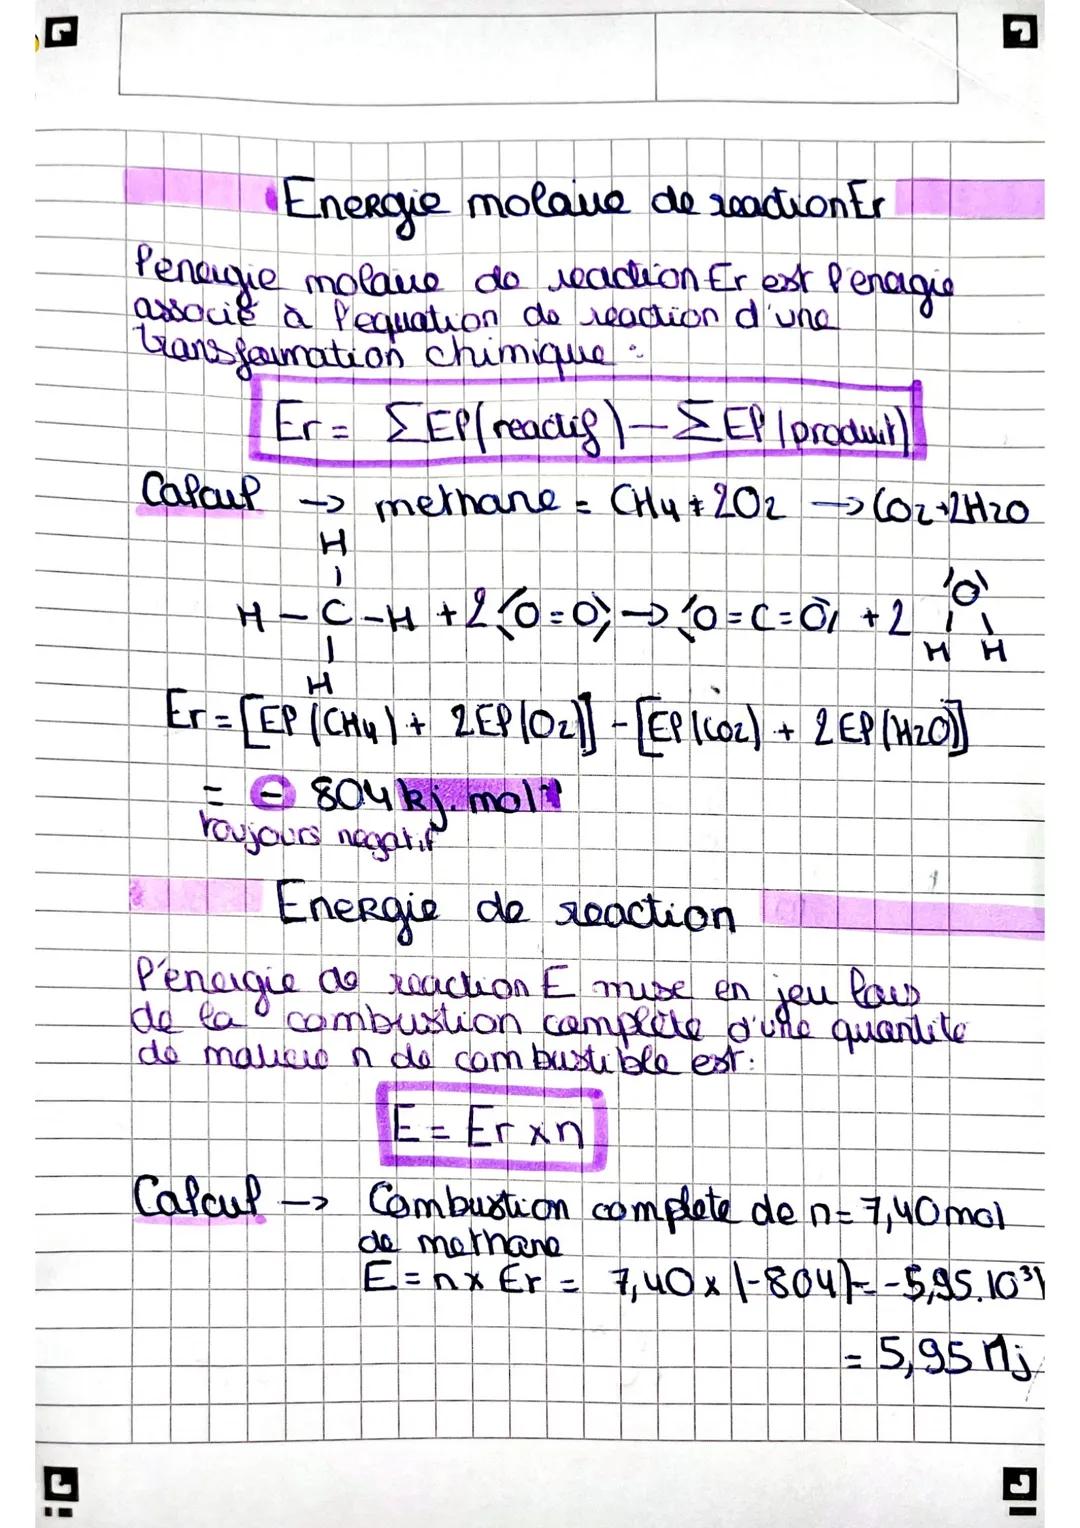 Energie molaire de reaction Er
l'energie molaire de reaction Er est l'energie
associé à l'equation de reaction d'une
transformation chimique :
Er = ΣEl(reactif) - ΣEl(produit)
Calcul → methane = CH4 + 2O2 → CO2+2H2O
H
H - C - H + 2 ⟨O=O⟩ → ⟨O=C=O⟩ + 2 |O|
H H
H
Er = [El(CH4) + 2El(O2)] - [El(CO2) + 2El(H2O)]
= - 804 kj.mol-1
toujours negatif
Energie de reaction
l'energie de reaction E mise en jeu lors
de la combustion complète d'une quantite
de matiere n de combustible est:
E = Er x n
Calcul → Combustion complete de n= 7,40 mol
de methane
E = n x Er = 7,40 x (-804) = -5,95.10³
= 5,95 Mj